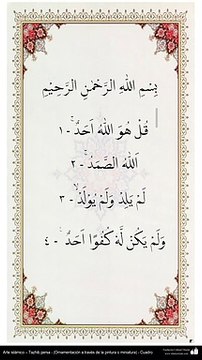 بِسْمِ اللهِ الرَّحْمٰنِ الرَّحِيْمِ
قُلْ هُوَ اللهُ اَحَدٌ ۚ -١
اَللهُ الصَّمَدُ ۚ -٢
لَمْ يَلِدْ وَلَمْ يُوْلَدْ ۙ -٣
وَلَمْ يَكُنْ لَّهٗ كُفُوًا اَحَدٌ ࣖ -٤
Arte islámico – Tazhib persa - (Ornamentación a través de la pintura o miniatura) - Cuadro